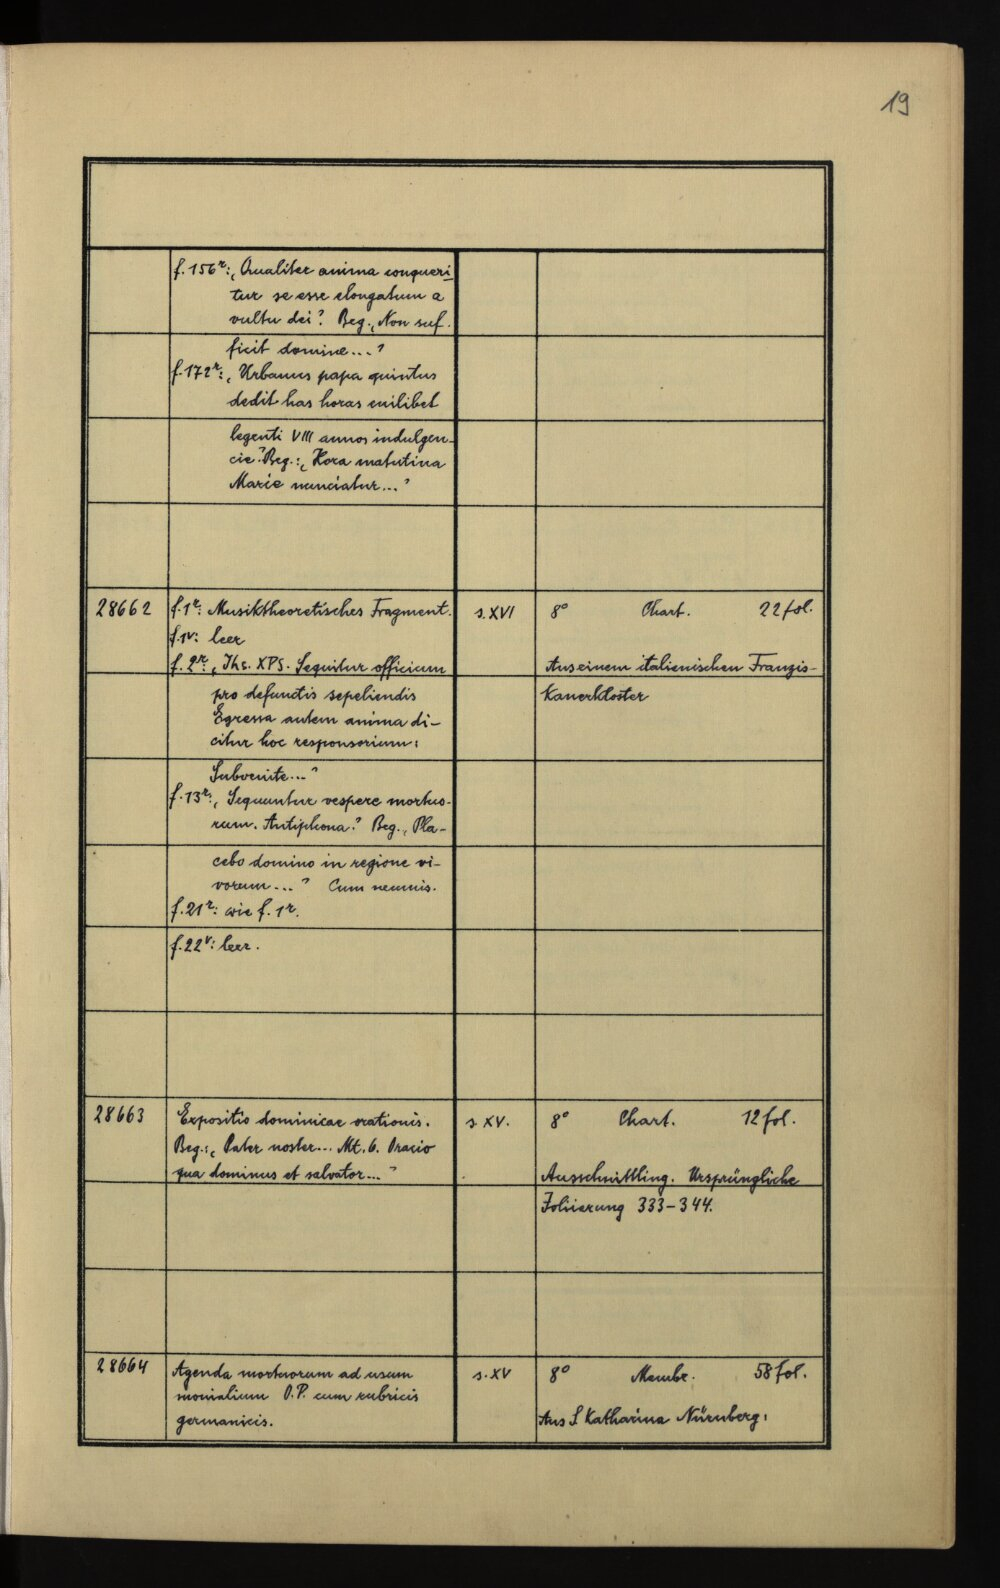 19
f. 156r: „Qualiter anima conqueri
tur se esse elongatum a
vultu dei." Beg. „Non suf-
ficit domine..."
f. 172r: „Urbanus papa quintus
dedit has horas cuilibet
legenti VIII annos indulgen-
cie." Beg.: „Hora matutina
Marie nunciatur..."
28662 f. 1r: Musiktheoretisches Fragment. s. XVI 8° Chart. 22 fol.
f. 1v: leer
f. 2r: „Ihc. XPS. Sequitur officium Aus einem italienischen Franzis-
pro defunctis sepeliendis kanerkloster
Egressa autem anima di-
citur hoc responsorium:
Subvenite..."
f. 13r: „Sequuntur vespere mortuo-
rum. Antiphona." Beg. „Pla-
cebo domino in regione vi-
vorum..." Cum neumis.
f. 21r: wie f. 1r.
f. 22v: leer.
28663 Expositio dominicae orationis. s XV. 8° Chart. 12 fol.
Beg.: „Pater noster... Mt. 6. Oracio
qua dominus et salvator..." Ausschnittling. Ursprüngliche
Foliierung 333-344.
28664 Agenda mortuorum ad usum s. XV 8° Membr. 58 fol.
monialium O.P. cum rubricis
germanicis. Aus S. Katharina Nürnberg: